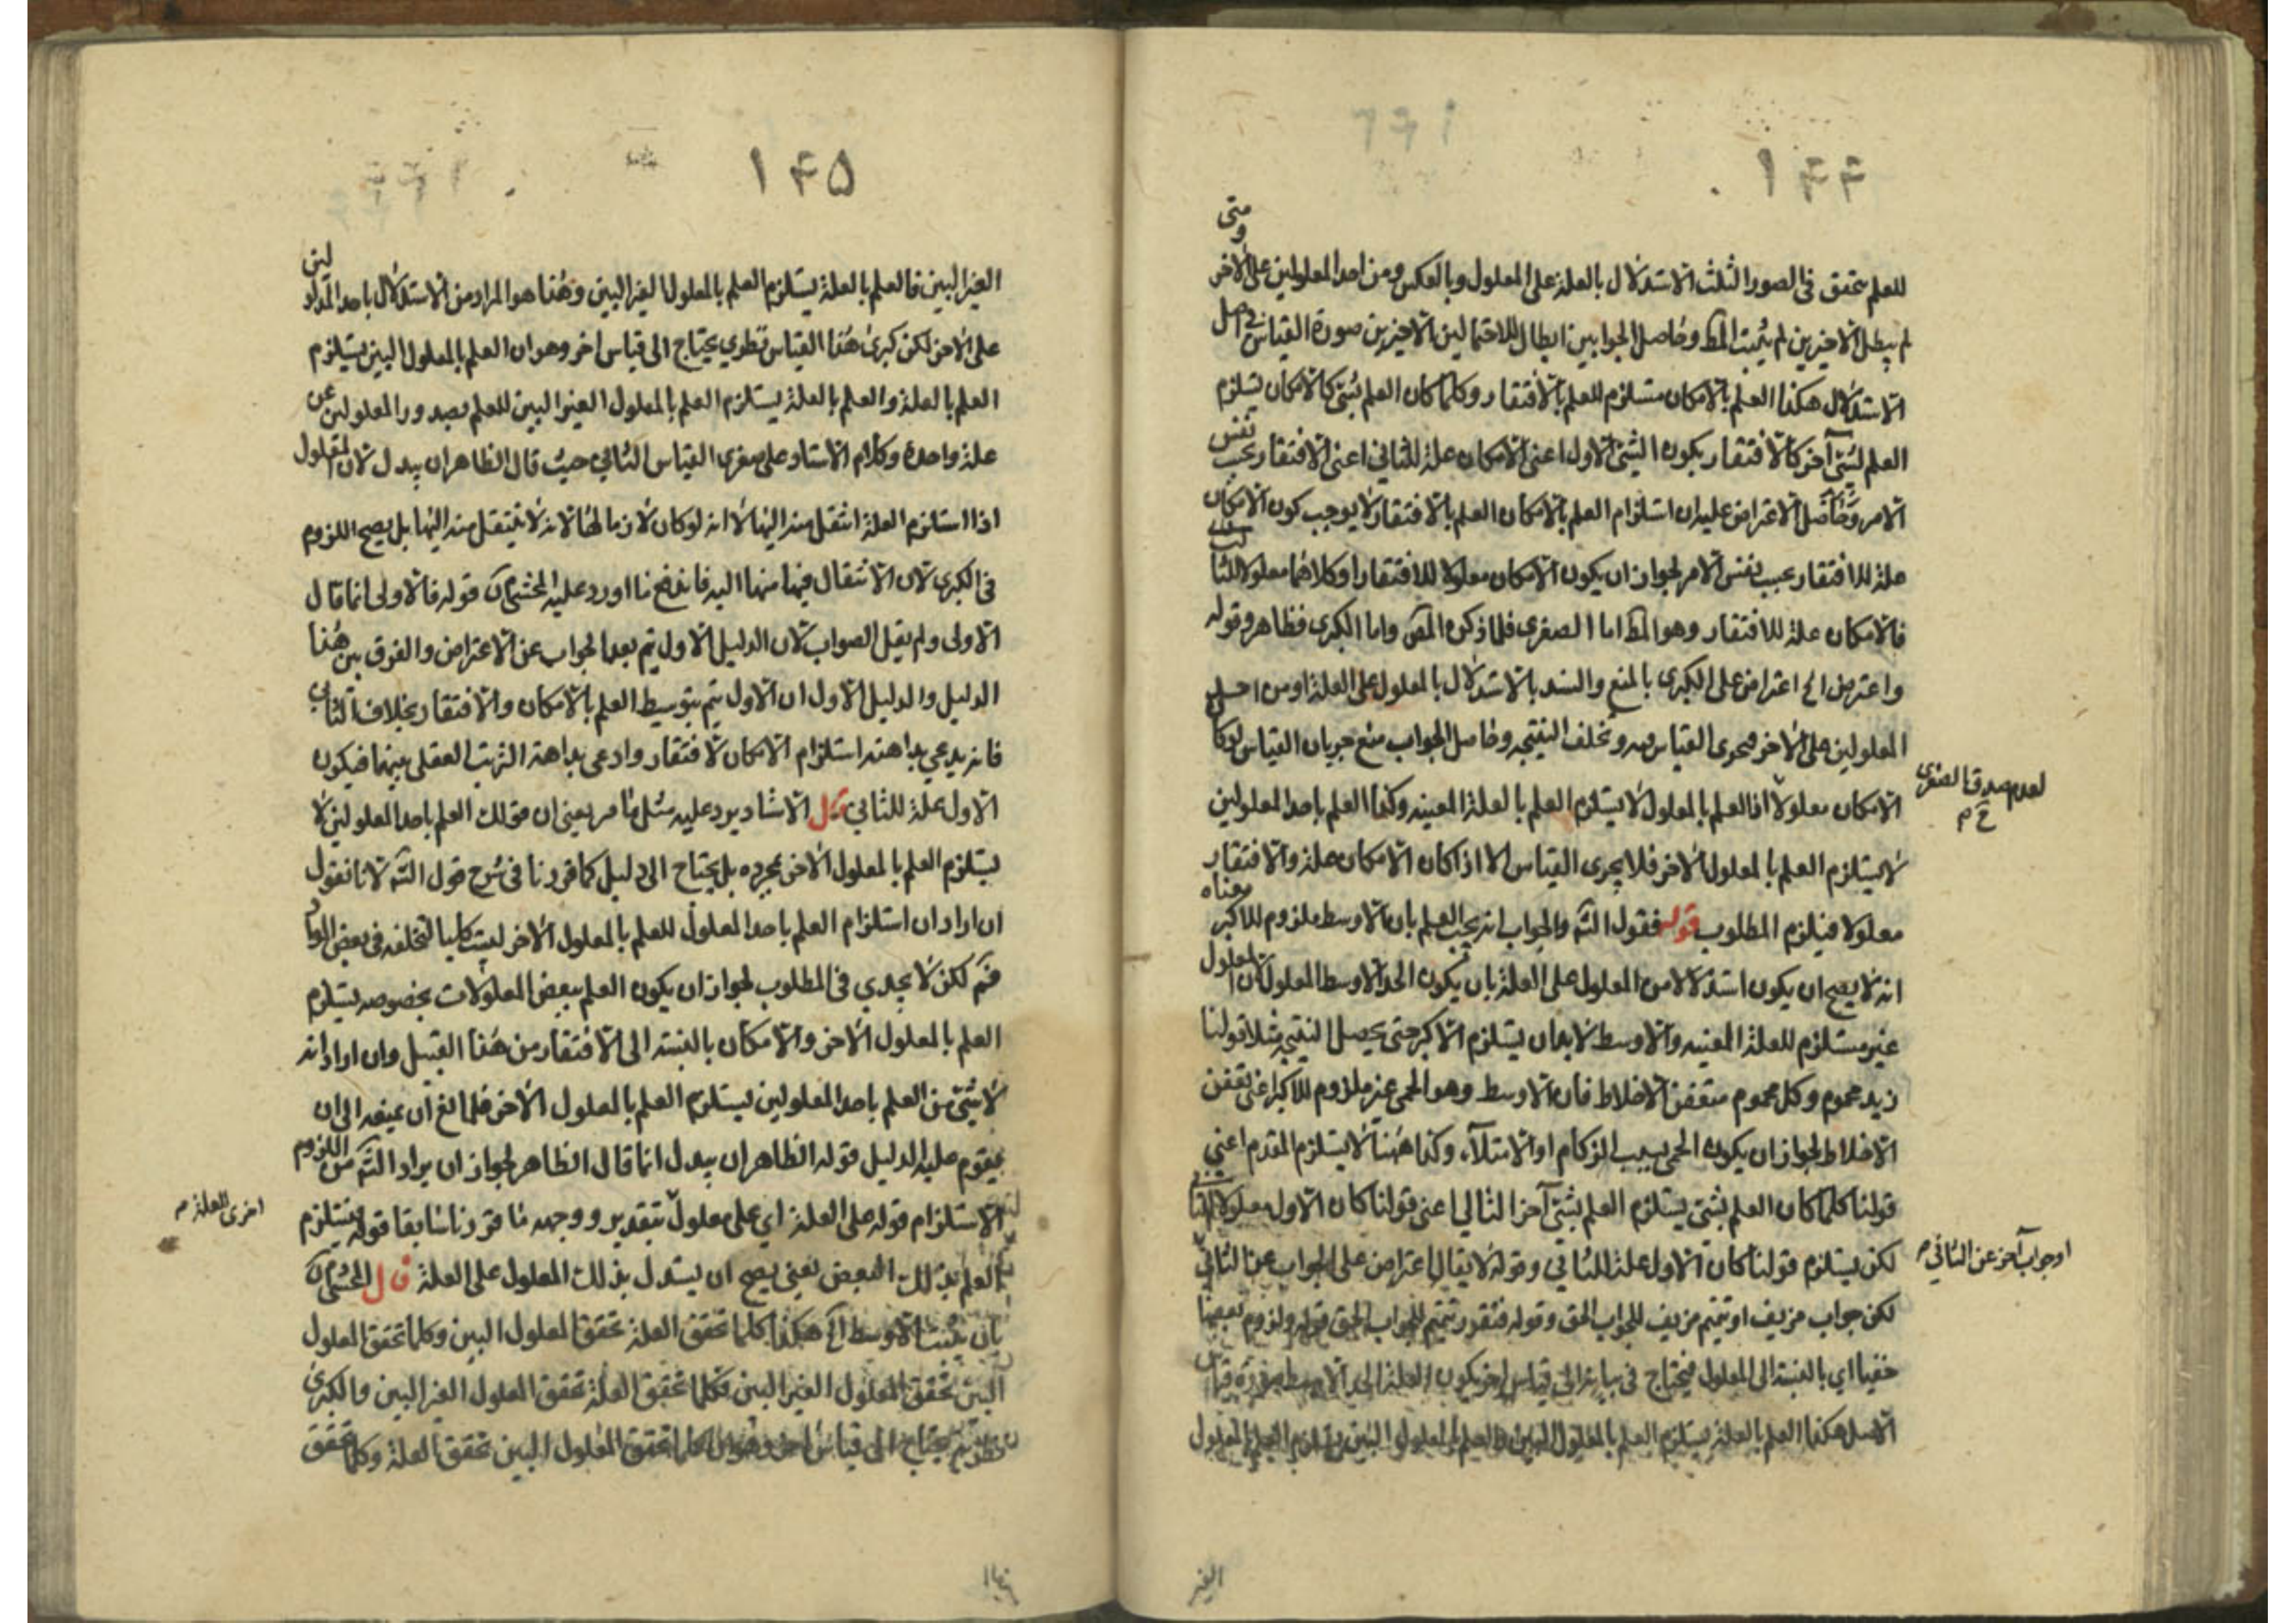 ١٤٤
للعلم تحقق فى الصور الثلث الاستدلال بالعلة على المعلول وبالعكس ومن احد المعلولين على الاخر ومتى
لم يبطل الاخيرين لم يثبت المط وحاصل الجوابين ابطال للاحتمالين الاخيرين صورة القياس فى اصل
الاستدلال هكذا العلم بالامكان مستلزم للعلم بالافتقار وكلما كان العلم بشئ كالامكان يستلزم
العلم بشئ آخر كالافتقار يكون الشئ الاول اعنى الامكان علة للثانى اعنى الافتقار بحسب نفس
الامر وحاصل الاعتراض عليه ان استلزام العلم بالامكان العلم بالافتقار لا يوجب كون الامكان
علة للافتقار بحسب نفس الامر لجواز ان يكون الامكان معلولا للافتقار او كلاهما معلولا لثالث
فالامكان علة للافتقار وهو المط اما الصغرى فلما ذكره المص واما الكبرى فظاهر وقوله
واعترض الخ اعتراض على الكبرى بالمنع والسند بالاستدلال بالمعلول على العلة او من احد
المعلولين على الاخر فيجرى القياس فيه وتخلف النتيجه وحاصل الجواب منع جريان القياس لو كان
الامكان معلولا اذ العلم بالمعلول لا يستلزم العلم بالعلة المعينه وكذا العلم باحد المعلولين
لعدم صدق الصغرى
ح م
لا يستلزم العلم بالمعلول الاخر فلا يجرى القياس الا اذا كان الامكان علة والافتقار
معلولا فيلزم المطلوب قوله فقول الش والجواب انه يجب العلم بان الاوسط ملزوم للاكبر معناه
انه لا يصح ان يكون استدلالا من المعلول على العلة بان يكون الحد الاوسط المعلول لان المعلول
غير مستلزم للعلة المعينه والاوسط لابد ان يستلزم الاكبر حتى يحصل النتيجه مثلا قولنا
زيد محموم وكل محموم متعفن الاخلاط فان الاوسط وهو الحمى غير ملزوم للاكبر اعنى تعفن
الاخلاط لجواز ان يكون الحمى بسبب الزكام او الامتلاء وكذا ههنا لا يستلزم المقدم اعنى
قولنا كلما كان العلم بشئ يستلزم العلم بشئ آخر التالى اعنى قولنا كان الاول معلولا للثانى
لكن يستلزم قولنا كان الاول علة للثانى وقوله لا يقال اعتراض على الجواب عن الثانى
او جواب آخر عن الثانى م
لكن جواب مزيف او تتميم مزيف للجواب الحق وقوله فنقول تتميم للجواب الحق قوله ولزوم بعضها
خفيا اى بالنسبة الى المعلول فيحتاج فى بيانه الى قياس اخر يكون العلة الحد الاوسط صورة قياس
الاصل هكذا العلم بالعلة يستلزم العلم بالمعلول البين والعلم بالمعلول البين يستلزم العلم بالمعلول
الغير
١٤٥
الغير البين فالعلم بالعلة يستلزم العلم بالمعلول الغير البين وهذا هو المراد من الاستدلال باحد المعلولين
على الاخر لكن كبرى هذا القياس نظرى يحتاج الى قياس اخر وهو ان العلم بالمعلول البين يستلزم
العلم بالعلة والعلم بالعلة يستلزم العلم بالمعلول الغير البين للعلم بصدور المعلولين عن
علة واحدة وكلام الاستاد على صغرى القياس الثانى حيث قال الظاهر ان يبدل لان المعلول
اذا استلزم العلة انتقل منه اليها لا انه لو كان لازما لها لانه لا ينتقل منه اليها بل يصح اللزوم
فى الكبرى لان الانتقال فيها منها اليه فاندفع ما اورد عليه المحشى قوله فالاولى انما قال
الاولى ولم يقل الصواب لان الدليل الاول يتم بعد الجواب عن الاعتراض والفرق بين هذا
الدليل والدليل الاول ان الاول يتم بتوسيط العلم بالامكان والافتقار بخلاف الثانى
فانه يدعى بداهة استلزام الامكان لافتقار وادعى بداهة الترتب العقلى بينهما فيكون
الاول علة للثانى قال الاستاد يرد عليه مثل ما مر يعنى ان قولك العلم باحد المعلولين لا
يستلزم العلم بالمعلول الاخر بمجرده بل يحتاج الى دليل كما قررنا فى شرح قول الش لانا نقول
ان اراد ان استلزام العلم باحد المعلول للعلم بالمعلول الاخر ليست كليا لتخلفه فى بعض المواد
فثم لكن لا يجدى فى المطلوب لجواز ان يكون العلم ببعض المعلولات بخصوصه يستلزم
العلم بالمعلول الاخر والامكان بالنسبة الى الافتقار من هذا القبيل وان اراد انه
لا شئ من العلم باحد المعلولين يستلزم العلم بالمعلول الاخر فلمانع ان يمنعه الى ان
يقوم عليه الدليل قوله الظاهر ان يبدل انما قال الظاهر لجواز ان يراد الش من اللزوم
الاستلزام قوله على العلة اى على معلول بتقدير ووجهه ما قررنا سابقا قوله يستلزم
اخرى العلة م
العلم بذلك البعض يعنى يصح ان يستدل بذلك المعلول على العلة قال المحشى
بان يثبت الاوسط الخ هكذا كلما تحقق العلة تحقق المعلول البين وكلما تحقق المعلول
البين تحقق المعلول الغير البين فكلما تحقق العلة تحقق المعلول الغير البين والكبرى
يحتاج الى قياس اخر وهو ان كلما تحقق المعلول البين تحقق العلة وكلما تحقق